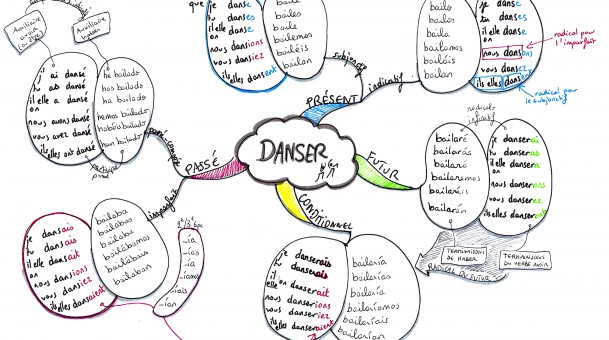 DANSER
PRÉSENT
subjonctif
que
danse
danses
danse
nous dansions
vous dansiez
ils elles dansent
baile
bailes
baile
bailemos
bailéis
bailen
indicatif
bailas
baila
bailamos
bailáis
bailan
je danse
tu danses
il elle danse
on
nous dansons
vous dansez
ils elles dansent
radical pour
l'imparfait
radical pour
le subjonctif
FUTUR
radical
infinitif
bailaré
bailarás
bailará
bailaremos
bailaréis
bailarán
je danserai
tu danseras
il elle dansera
on
nous danserons
vous danserez
ils elles danseront
TERMINAISONS
DE HABER
TERMINAISONS
DU VERBE AVOIR
RADICAL DU FUTUR
CONDITIONNEL
je danserais
tu danserais
il elle danserait
on
nous danserions
vous danseriez
ils elles danseraient
bailaría
bailarías
bailaría
bailaríamos
bailaríais
bailarían
PASSÉ
passé composé
Auxiliaire
avoir
(ou être)
Auxiliaire
haber
j' ai dansé
tu as dansé
il elle a dansé
on
nous avons dansé
vous avez dansé
ils elles ont dansé
participe
passé
he bailado
has bailado
ha bailado
hemos bailado
habéis bailado
han bailado
imparfait
je dansais
tu dansais
il elle dansait
on
nous dansions
vous dansiez
ils elles dansaient
bailaba
bailabas
bailaba
bailábamos
bailabais
bailaban
-ía
-ías
-ía
-íamos
-íais
-ían